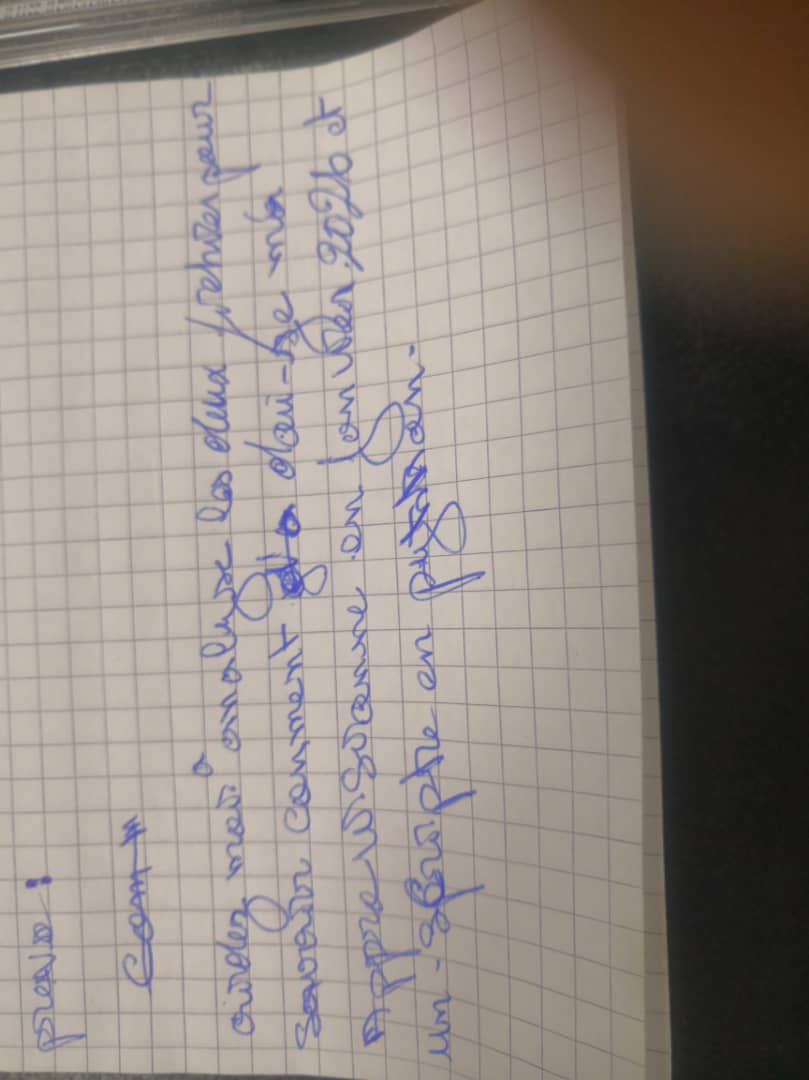 preuve :
aidez moi à analyse les deux fichier pour
savoir comment doi-je m'a
Apprevisionne en Janvier 2026 et
un - script en python.